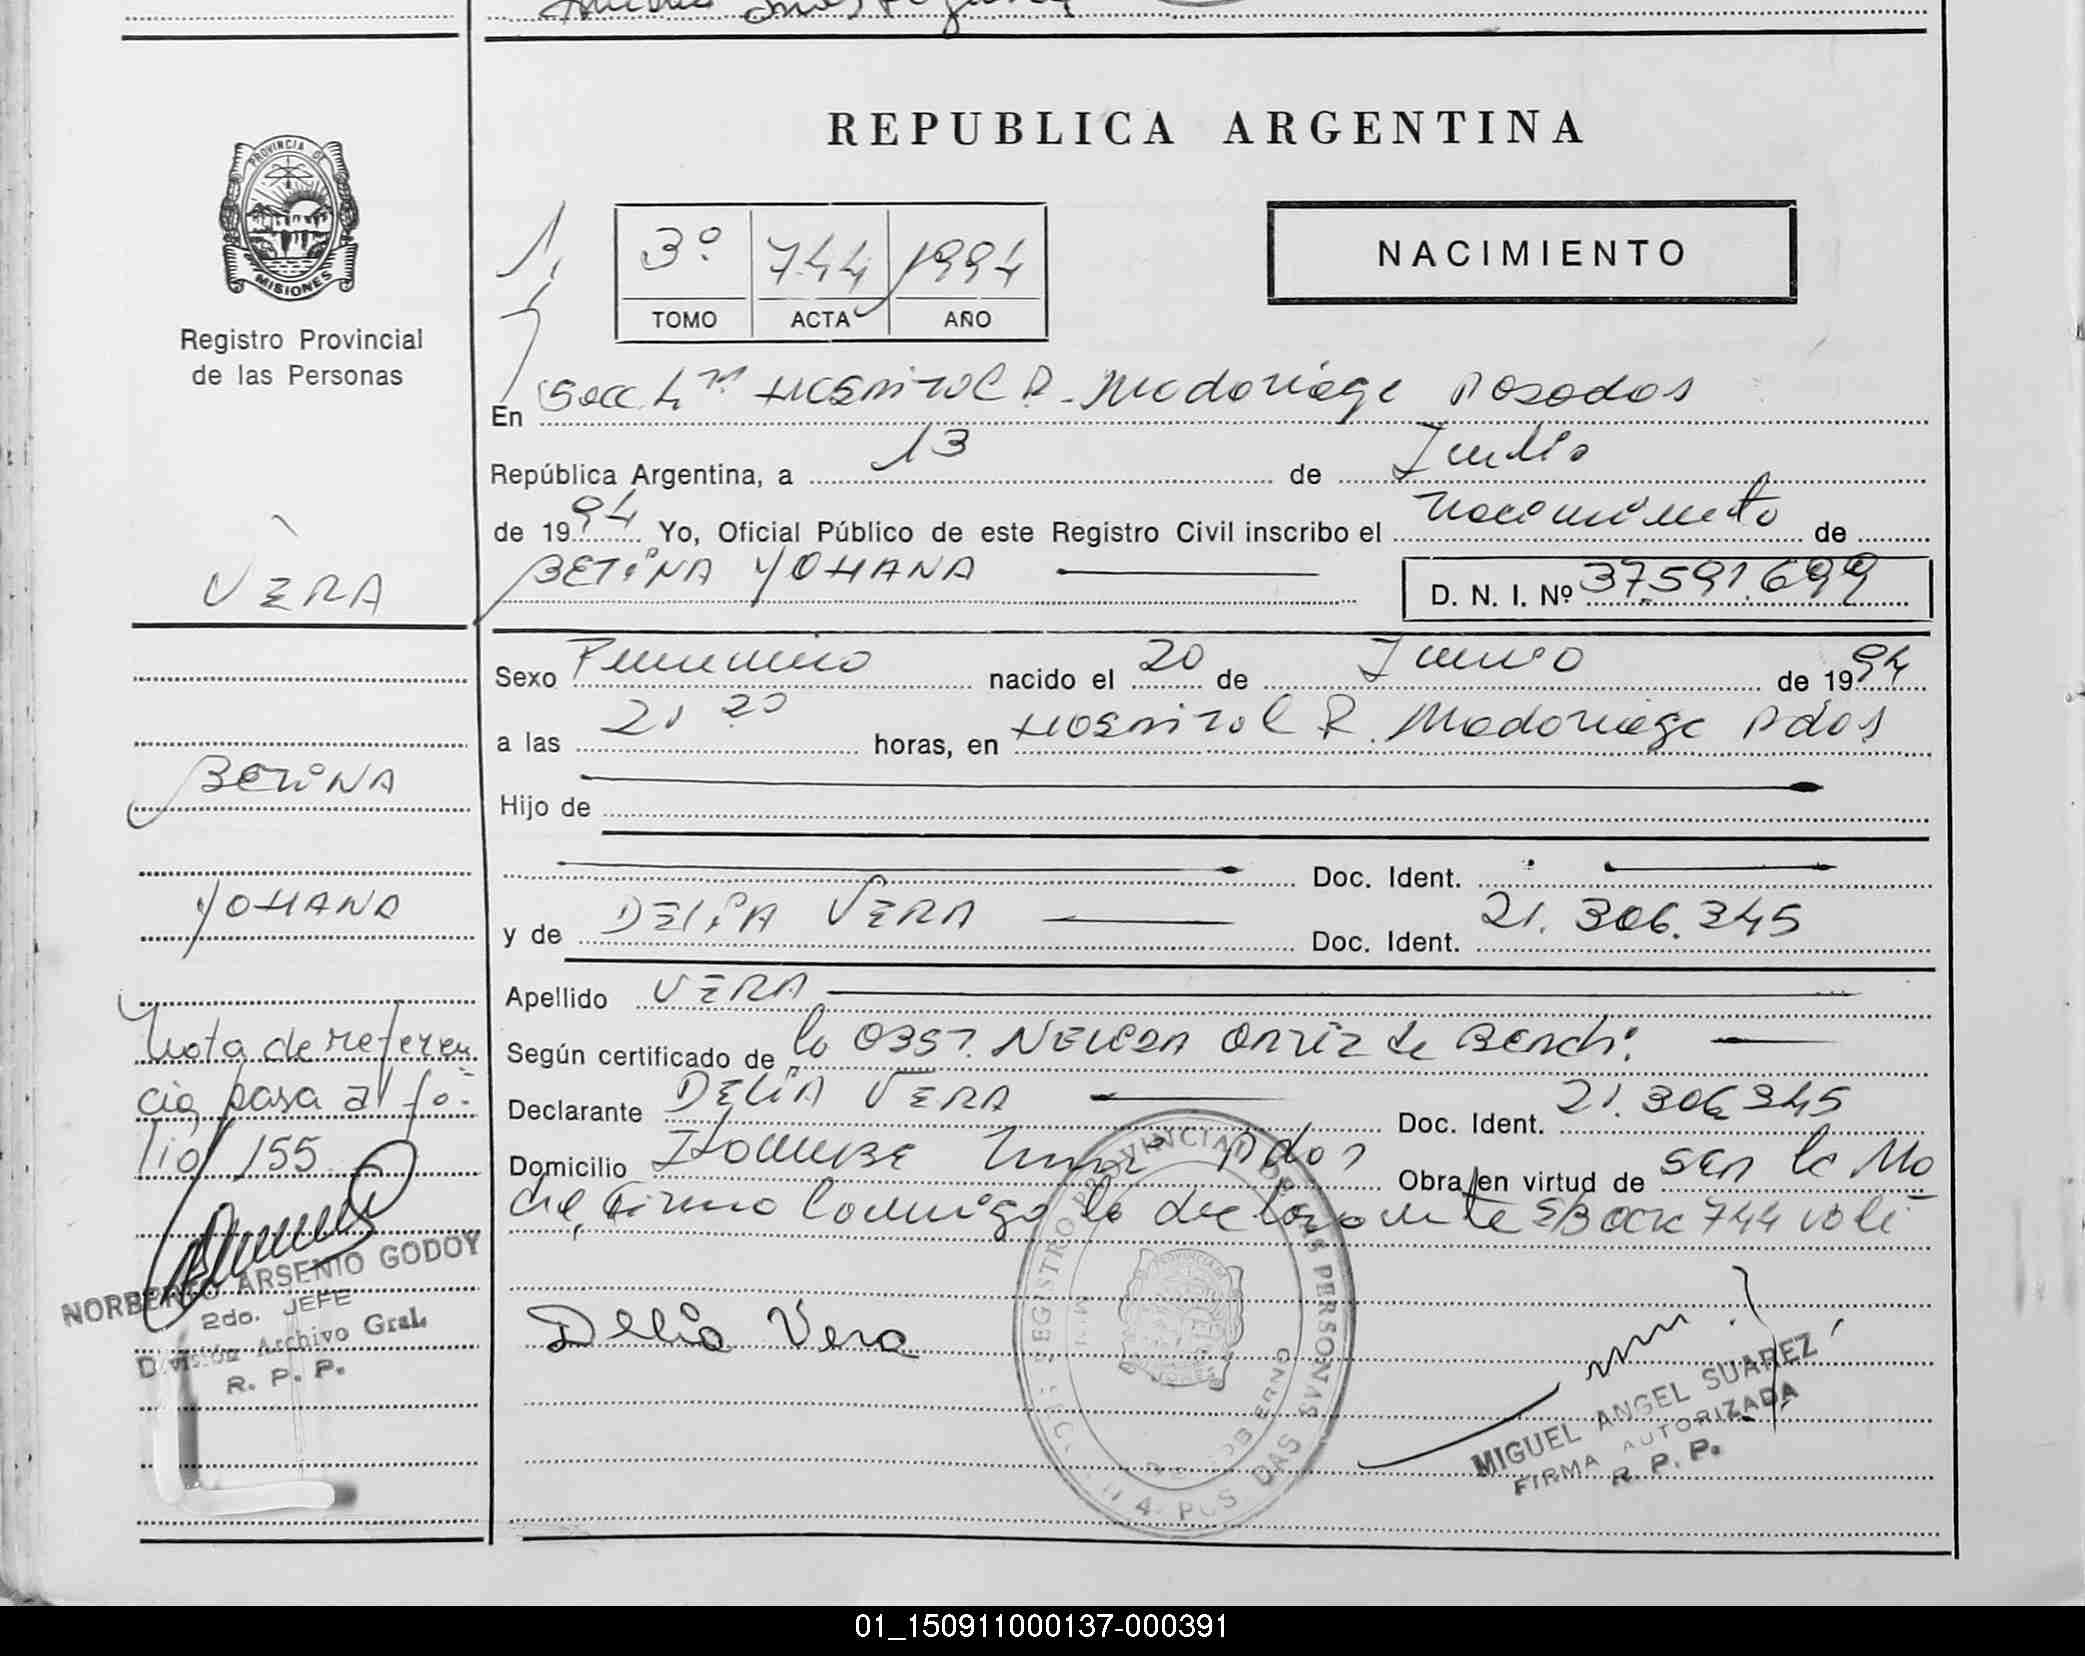 REPUBLICA ARGENTINA
PROVINCIA DE
MISIONES
Registro Provincial
de las Personas
3º 744 1994
TOMO ACTA AÑO
NACIMIENTO
En Secc. 4ta Hospital R. Madariaga Posadas
República Argentina, a 13 de Julio
de 1994 Yo, Oficial Público de este Registro Civil inscribo el Nacimiento de
BETINA YOHANA D. N. I. Nº 37.591.699
VERA
Sexo Femenino nacido el 20 de Junio de 1994
a las 21 20 horas, en Hospital R. Madariaga Pdas
BETINA
Hijo de
Doc. Ident.
YOHANA
y de DELIA VERA Doc. Ident. 21.306.345
Apellido VERA
Nota de referen
cia pasa al fo-
lio 155
Según certificado de la OBST. NELIDA ORTIZ de
Declarante DELIA VERA Doc. Ident. 21.306.345
Domicilio Pdas Obra en virtud de SER la Ma
dre, Firma Conmigo la declarante S/B acta 744 vale
NORBERTO ARSENIO GODOY
2do. JEFE
División Archivo Gral.
R. P. P.
Delia Vera
REGISTRO PROVINCIAL DE LAS PERSONAS
MIGUEL ANGEL SUAREZ
FIRMA AUTORIZADA
R. P. P.
01_150911000137-000391